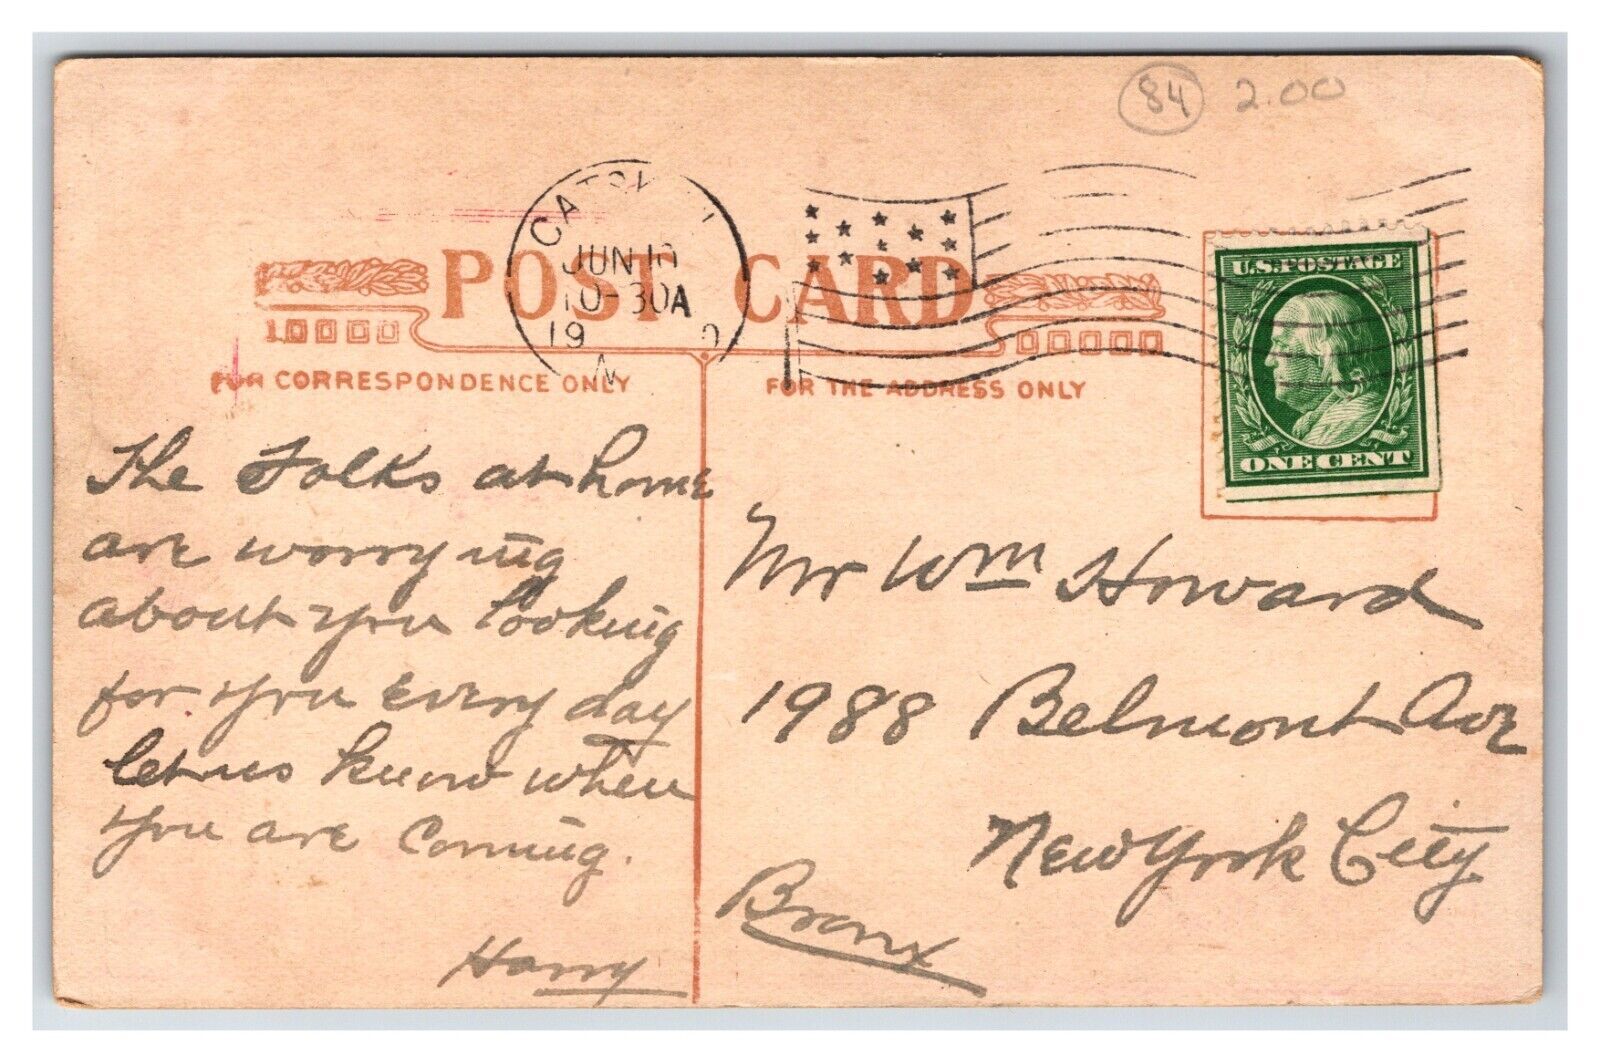 84 2.00
JUN
10-30A
19
POST CARD
FOR CORRESPONDENCE ONLY
FOR THE ADDRESS ONLY
U.S. POSTAGE
ONE CENT
The Folks at home
are worrying
about you looking
for you every day
let us know when
you are coming.
Harry
Mr Wm Howard
1988 Belmont Ave
New York City
Bronx